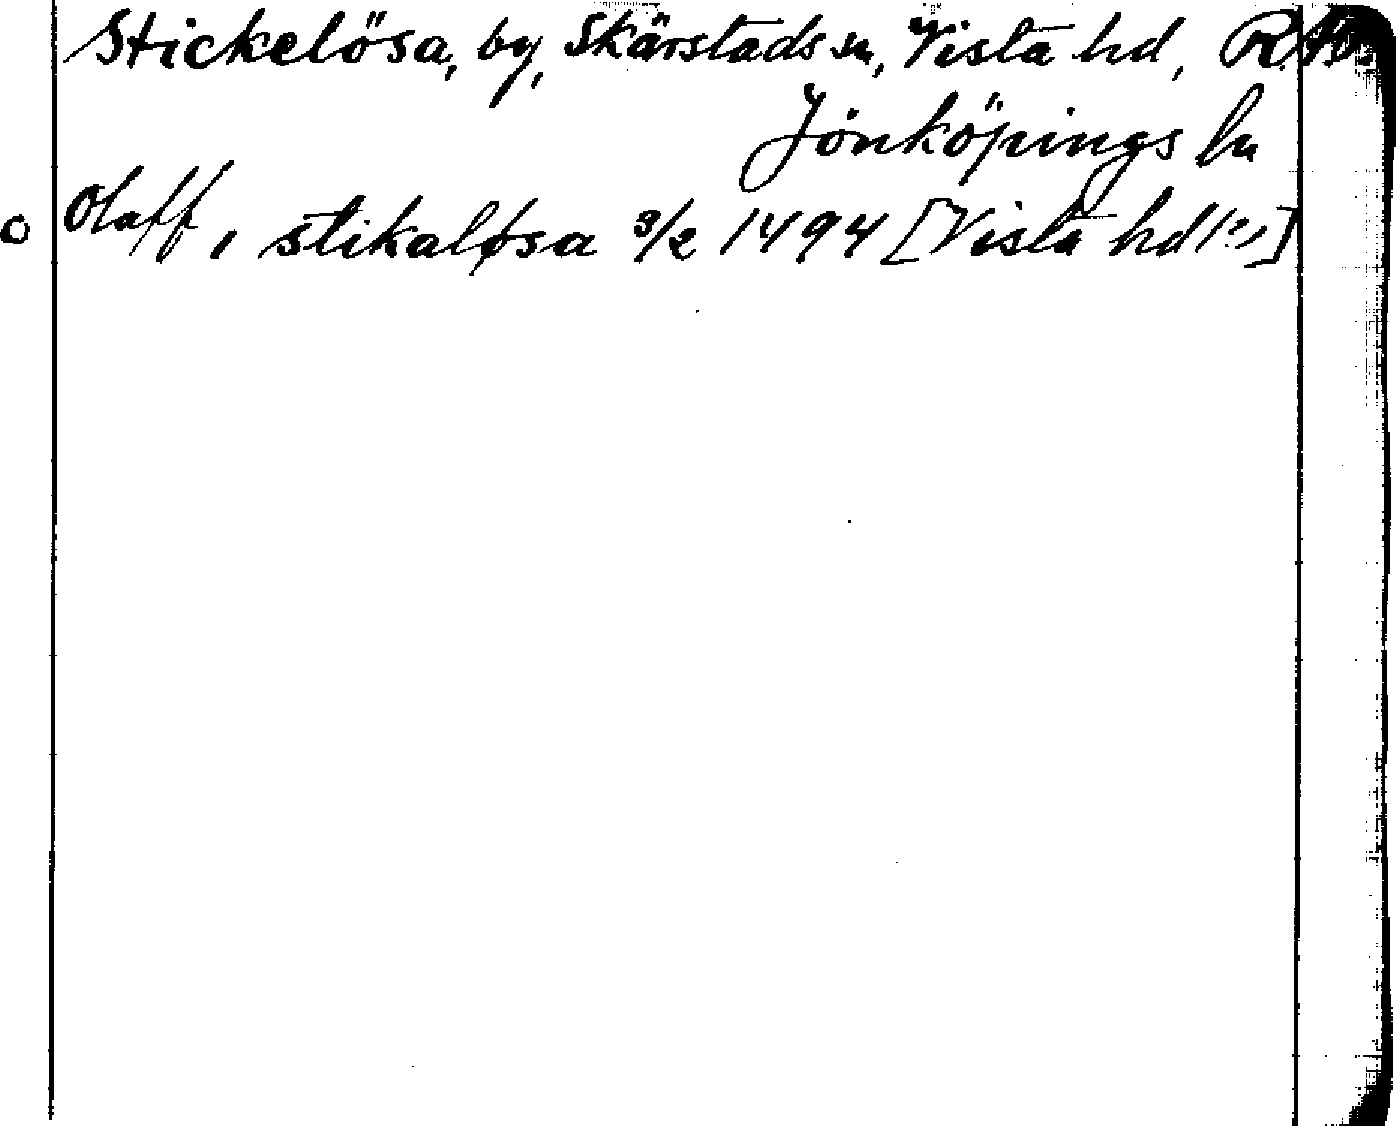 Stickelösa, by, Skärstads sn, Vista hd, RAO.
Jönköpings ln
Olaff, i stikaløsa 3/2 1494 [Vista hd(?)]